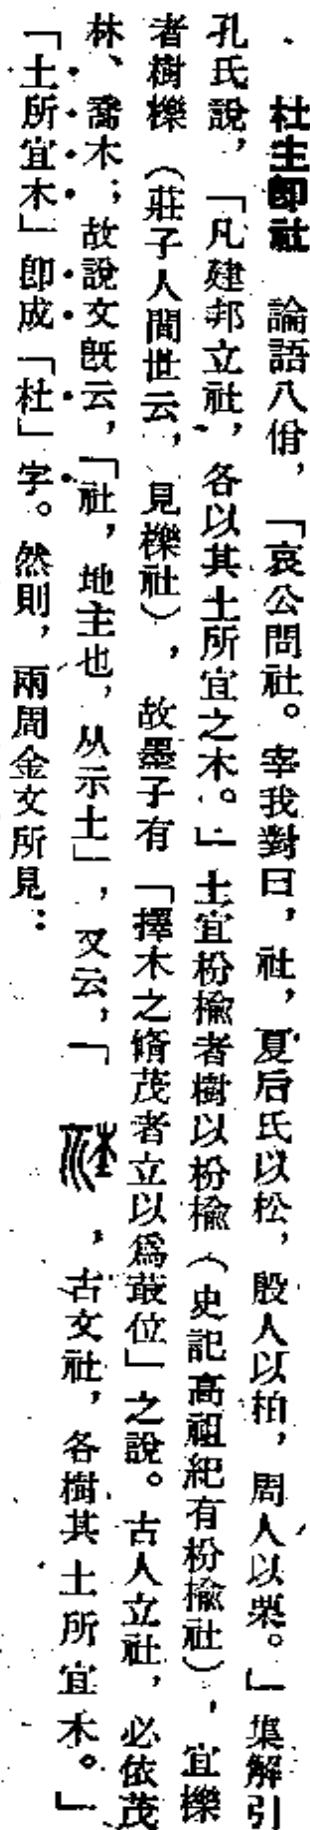 杜主卽社　論語八佾，「哀公問社。宰我對曰，社，夏后氏以松，殷人以柏，周人以栗。」集解引
孔氏說，「凡建邦立社，各以其土所宜之木。」土宜枌楡者樹以枌楡（史記高祖紀有枌楡社），宜櫟
者樹櫟（莊子人間世云，見櫟社），故墨子有「擇木之脩茂者立以爲菆位」之說。古人立社，必依茂
林、喬木；故說文旣云，「社，地主也，从示土」，又云，「，古文社，各樹其土所宜木。」
「土所宜木」卽成「杜」字。然則，兩周金文所見：